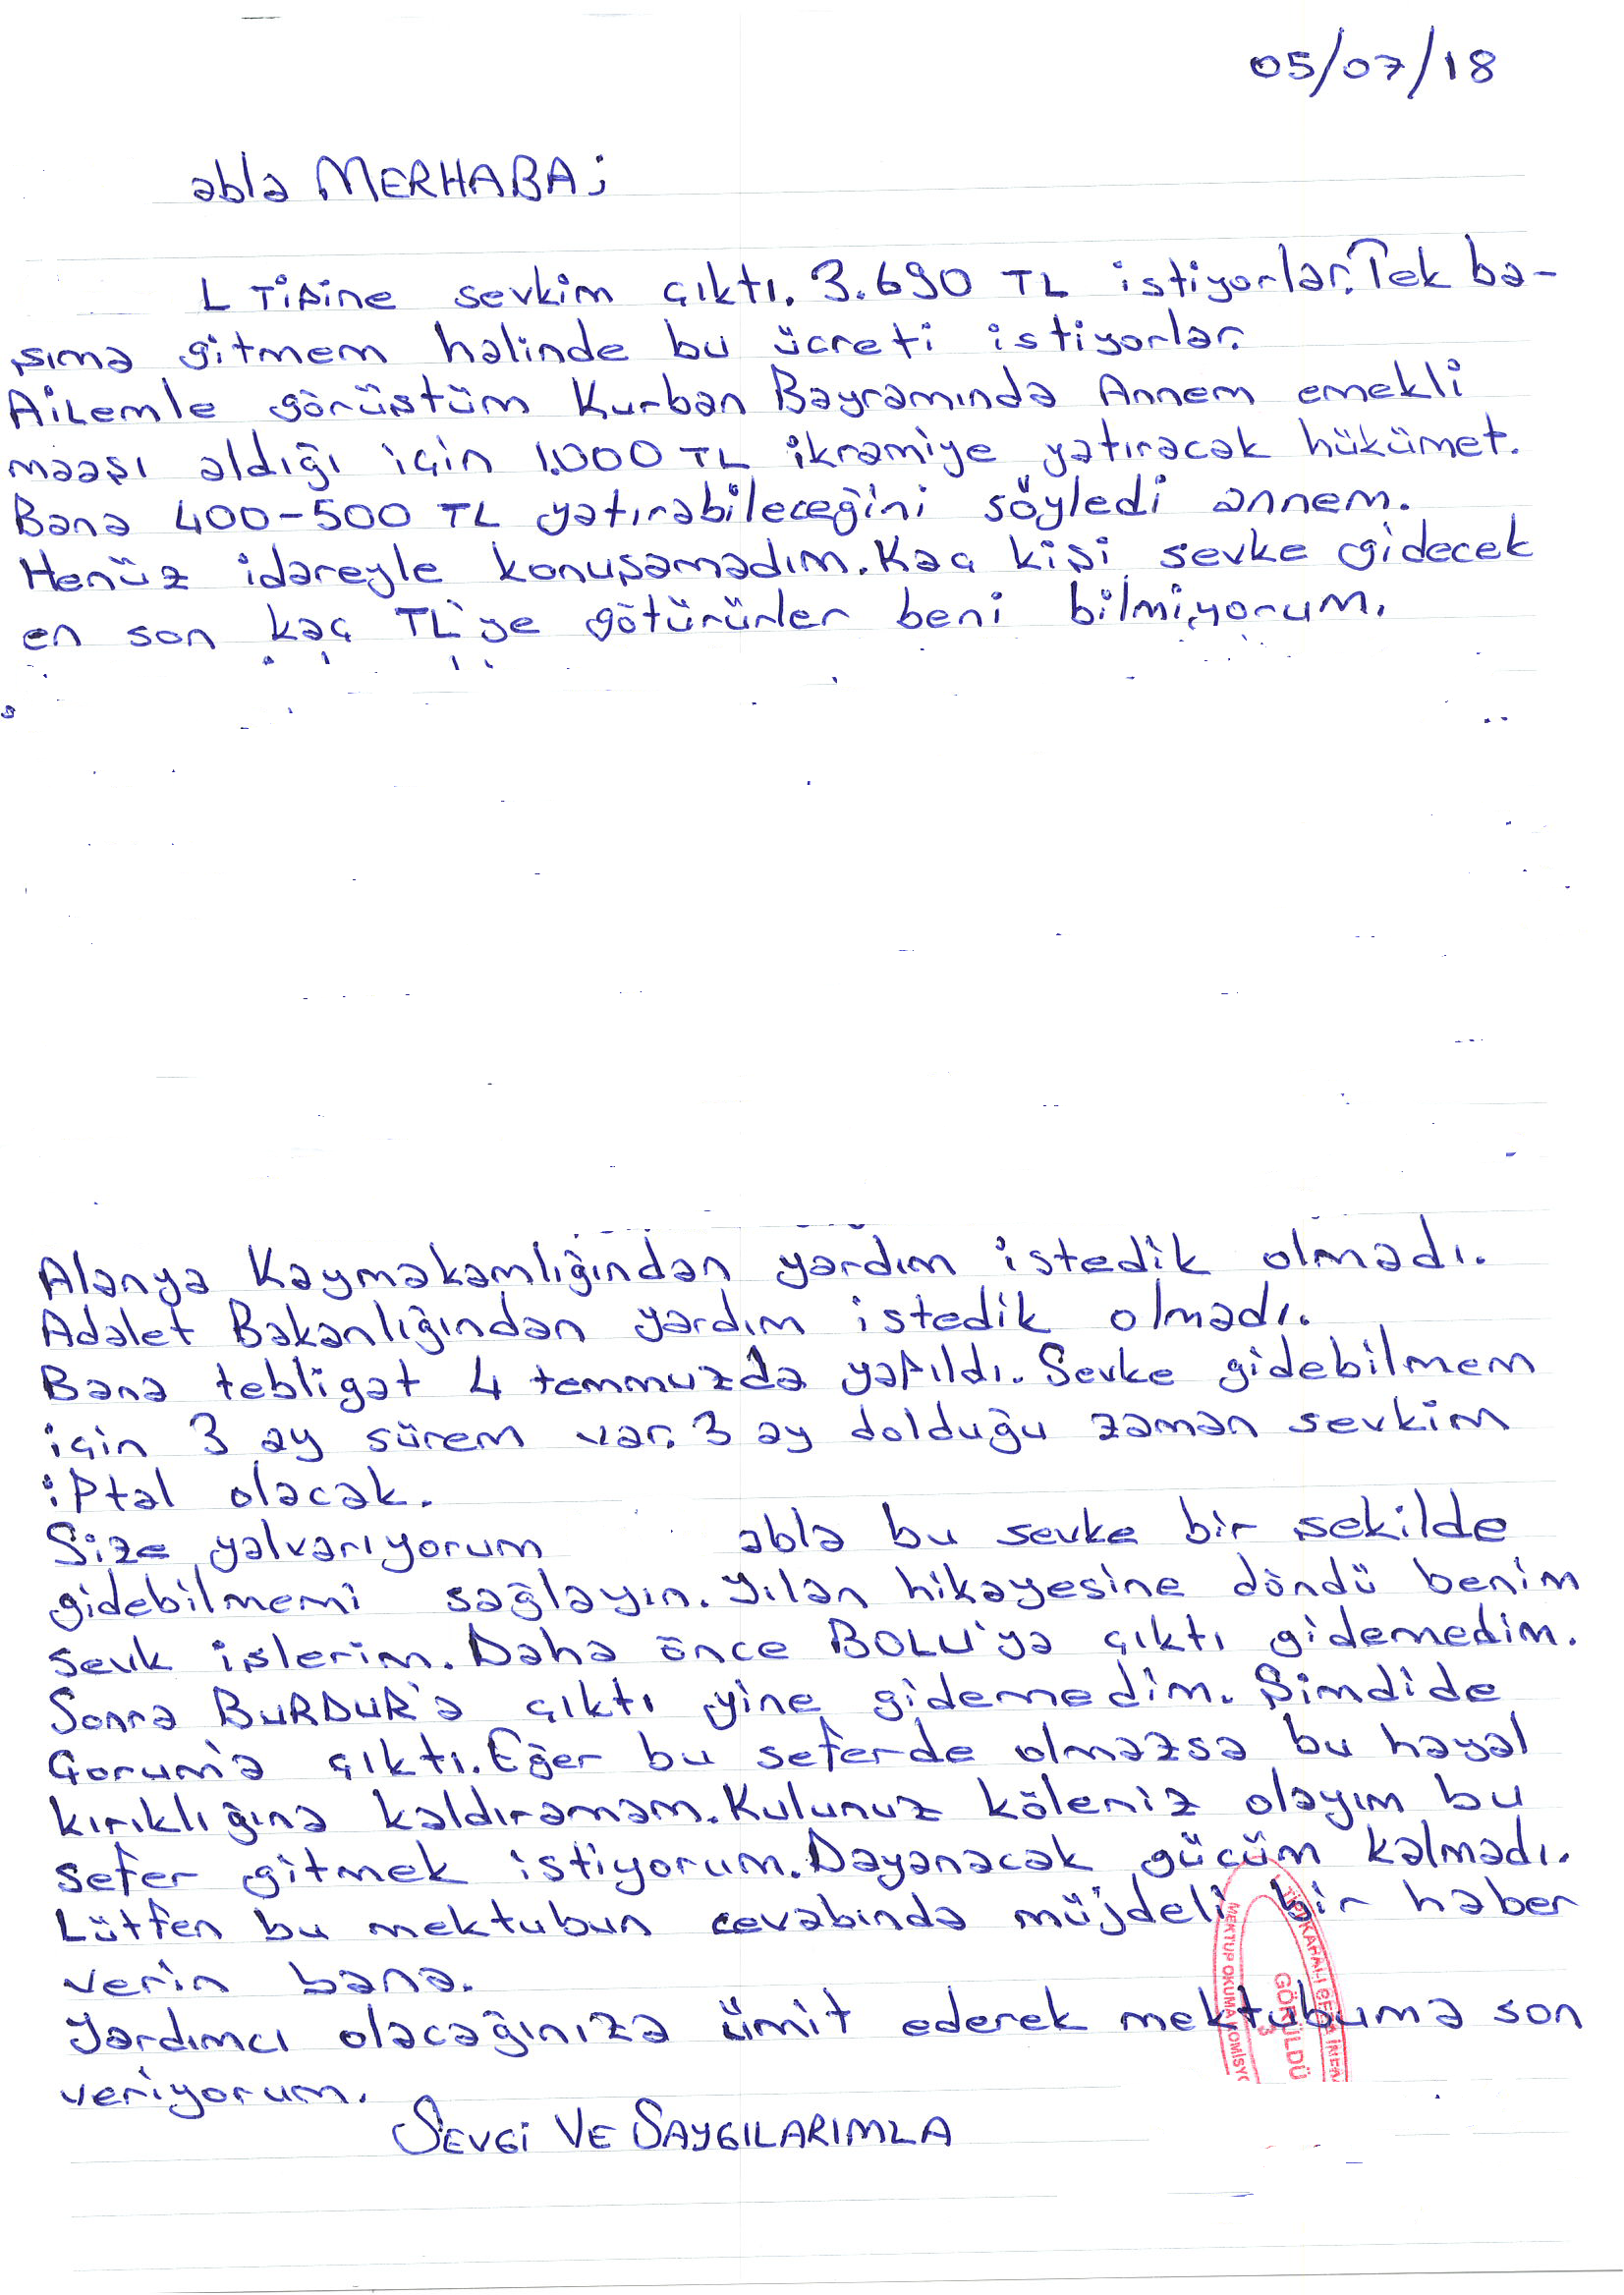 05/07/18
abla MERHABA;
L Tipine sevkim çıktı. 3.690 TL istiyorlar. Tek ba-
şıma gitmem halinde bu ücreti istiyorlar.
Ailemle görüştüm Kurban Bayramında Annem emekli
maaşı aldığı için 1.000 TL ikramiye yatıracak hükümet.
Bana 400-500 TL yatırabileceğini söyledi annem.
Henüz idareyle konuşamadım. Kaç kişi sevke gidecek
en son kaç TL'ye götürürler beni bilmiyorum.
Alanya Kaymakamlığından yardım istedik olmadı.
Adalet Bakanlığından yardım istedik olmadı.
Bana tebligat 4 temmuzda yapıldı. Sevke gidebilmem
için 3 ay sürem var. 3 ay dolduğu zaman sevkim
iptal olacak.
Size yalvarıyorum abla bu sevke bir şekilde
gidebilmemi sağlayın. Yılan hikayesine döndü benim
sevk işlerim. Daha önce BOLU'ya çıktı gidemedim.
Sonra BURDUR'a çıktı yine gidemedim. Şimdide
Çorum'a çıktı. Eğer bu seferde olmazsa bu hayal
kırıklığına kaldıramam. Kulunuz köleniz olayım bu
sefer gitmek istiyorum. Dayanacak gücüm kalmadı.
Lütfen bu mektubun cevabında müjdeli bir haber
verin bana.
Yardımcı olacağınıza ümit ederek mektubuma son
veriyorum.
SEVGİ VE SAYGILARIMLA
TİPİ KAPALI CEZA İNFA
GÖRÜLDÜ
3
MEKTUP OKUMA KOMİSY